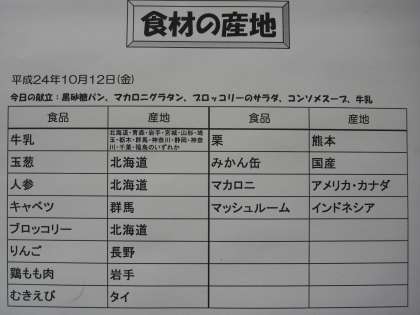 食材の産地
平成24年10月12日(金)
今日の献立：黒砂糖パン、マカロニグラタン、ブロッコリーのサラダ、コンソメスープ、牛乳
食品 産地 食品 産地
牛乳 北海道・青森・岩手・宮城・山形・埼
玉・栃木・群馬・神奈川・静岡・神奈
川・千葉・福島のいずれか 栗 熊本
玉葱 北海道 みかん缶 国産
人参 北海道 マカロニ アメリカ・カナダ
キャベツ 群馬 マッシュルーム インドネシア
ブロッコリー 北海道
りんご 長野
鶏もも肉 岩手
むきえび タイ